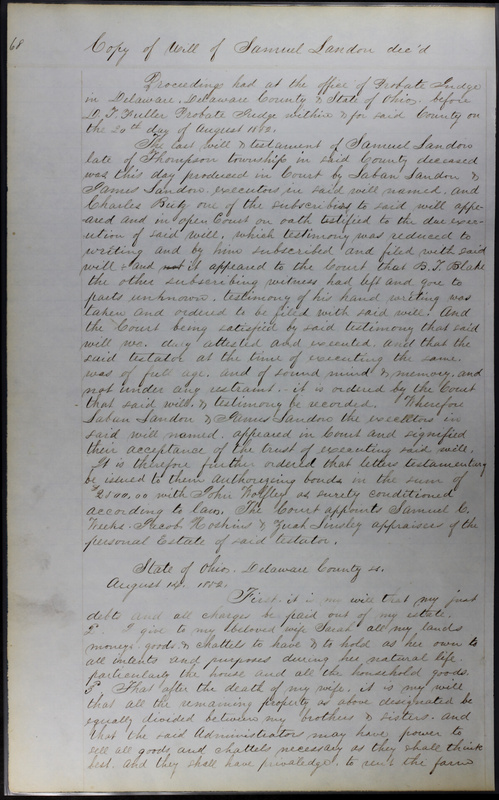 68
Copy of Will of Samuel Landon dec'd
Proceedings had at the office of Probate Judge
in Delaware, Delaware County & State of Ohio, before
D. T. Fuller Probate Judge within & for said County on
the 20th day of August 1852.
The last will & testament of Samuel Landon
late of Thompson township in said County deceased
was this day produced in Court by Laban Landon &
James Landon executors in said will named, and
Charles one of the subscribing to said will appe-
ared and in open Court on oath testified to the due exec-
ution of said will, which testimony was reduced to
writing and by him subscribed and filed with said
will & and it appeared to the Court that B. T. Blake
the other subscribing witness had left and gone to
parts unknown, testimony of his hand writing was
taken and ordered to be filed with said will. And
the Court being satisfied by said testimony that said
will was duly attested and executed, and that the
said testator at the time of executing the same.
was of full age, and of sound mind & memory, and
not under any restraint.- it is ordered by the Court
that said will, & testimony be recorded. Therefore
Laban Landon & James Landon the executors in
said will named, appeared in Court and signified
their acceptance of the trust of executing said will.
It is therefore further ordered that letters testamentary
be issued to them Authorizing bonds in the sum of
$2500.00 with John as surety conditioned
according to law. The Court appoints Samuel C.
Weeks, Jacob Hoskins & Tinsley appraisers of the
personal Estate of said testator.
State of Ohio, Delaware County ss.
August 14. 1852.
First, it is my will that my just
debts and all charges be paid out of my estate.
2. I give to my beloved wife Sarah all my lands
moneys goods & chattels to have & to hold as her own to
all intents and purposes during her natural life.
particularly the house and all the household goods.
3. That after the death of my wife, it is my will
that all the remaining property as above designated be
equally divided between my brothers & sisters. and
that the said Administrators may have power to
sell all goods and chattels necessary as they shall think
best. and they shall have priviledge, to rent the farm